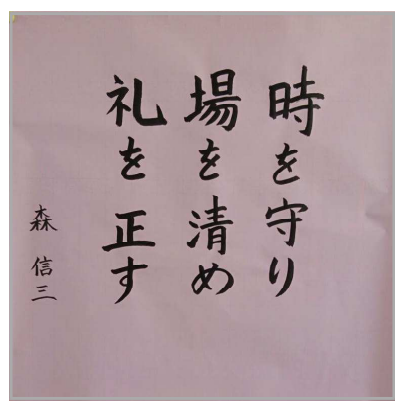 時を守り
場を清め
礼を正す
森信三